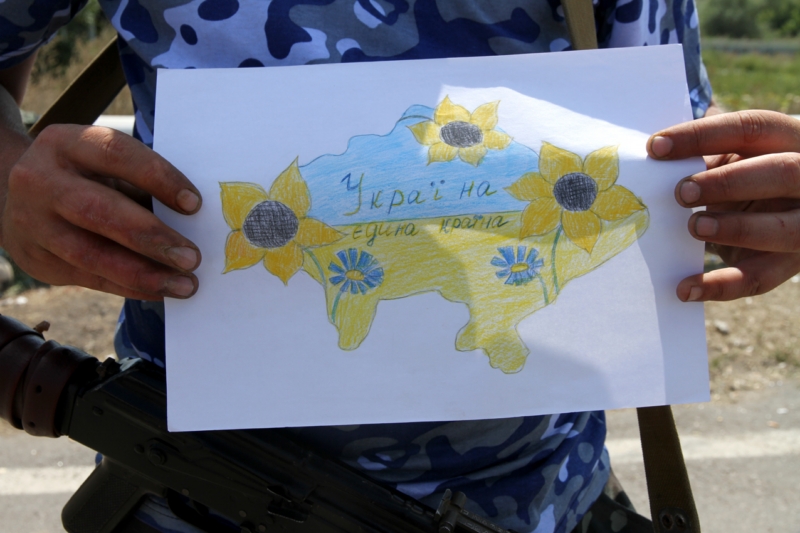 Україна
єдина країна